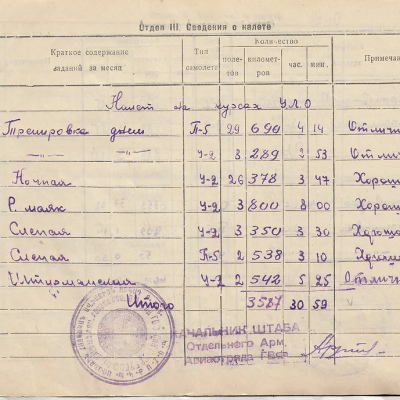 Отдел III. Сведения о налете
Краткое содержание заданий за месяц
Тип самолета
Количество
полетов
километров
час.
мин.
Примечан
Налет на курсах УЛО
Тренировка днем П-5 29 690 4 14 Отлич
—„— —„— У-2 3 289 2 53 Отлич
Ночная У-2 26 378 3 47 Хорош
Р. маяк У-2 3 800 8 00 Хорош
Слепая У-2 3 350 3 30 Хорош
Слепая П-5 2 538 3 10 Хорош
Штурманская У-2 2 542 5 25 Отлич
Итого 3587 30 59
НАЧАЛЬНИК ШТАБА
Отдельного Арм.
Авиаотряда ГВФ